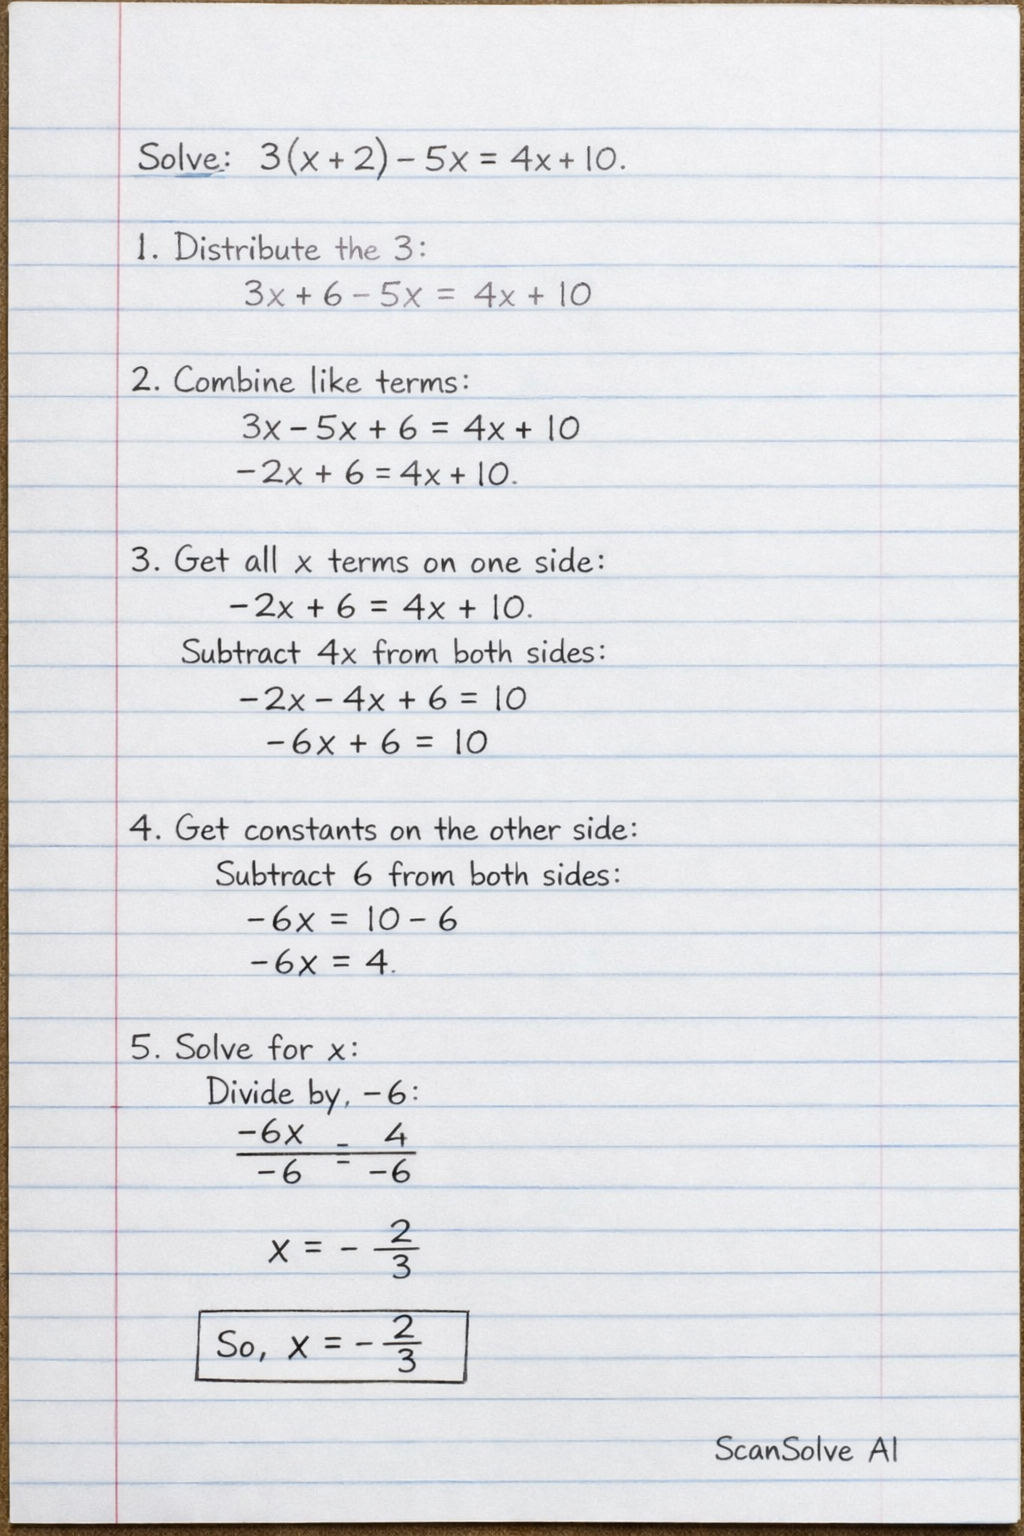 Solve: 3(x + 2) - 5x = 4x + 10.
1. Distribute the 3:
3x + 6 - 5x = 4x + 10
2. Combine like terms:
3x - 5x + 6 = 4x + 10
-2x + 6 = 4x + 10.
3. Get all x terms on one side:
-2x + 6 = 4x + 10.
Subtract 4x from both sides:
-2x - 4x + 6 = 10
-6x + 6 = 10
4. Get constants on the other side:
Subtract 6 from both sides:
-6x = 10 - 6
-6x = 4.
5. Solve for x:
Divide by, -6:
-6x/-6 = 4/-6
x = - 2/3
So, x = - 2/3
ScanSolve AI